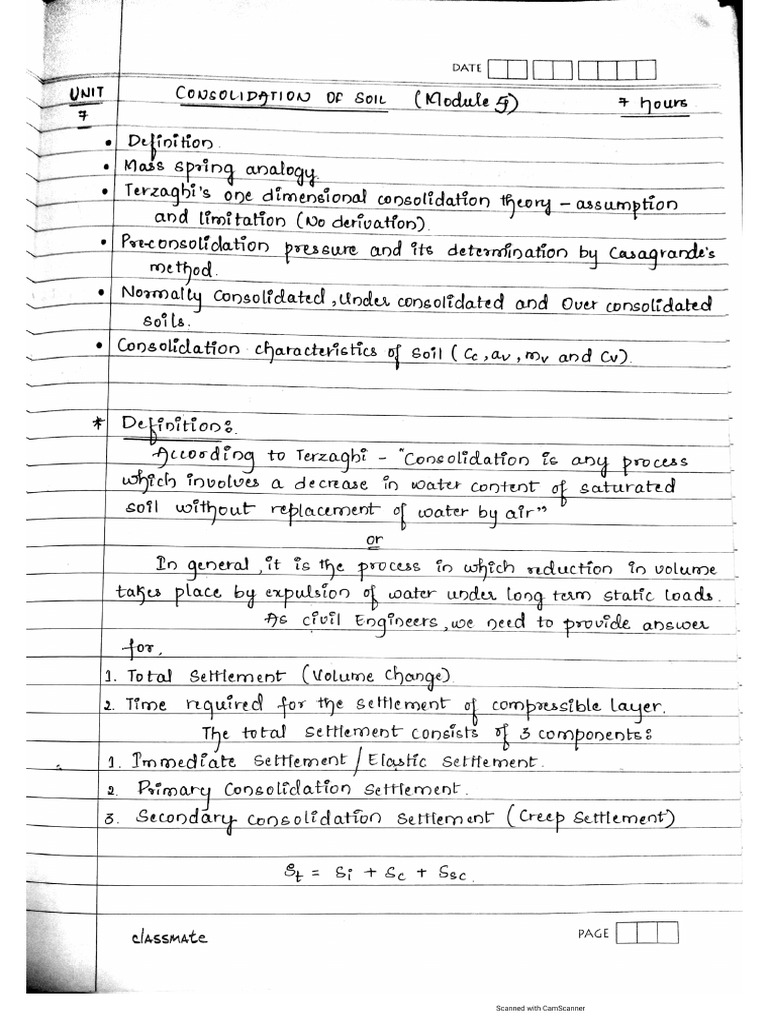 DATE
UNIT 7
CONSOLIDATION OF SOIL (Module 5) 7 hours
• Definition.
• Mass spring analogy.
• Terzaghi's one dimensional consolidation theory – assumption
and limitation (No derivation).
• Pre-consolidation pressure and its determination by Casagrande's
method.
• Normally Consolidated, Under consolidated and Over consolidated
soils.
• Consolidation characteristics of soil (Cc, av, mv and Cv).
* Definition:
According to Terzaghi - "Consolidation is any process
which involves a decrease in water content of saturated
soil without replacement of water by air"
or
In general, it is the process in which reduction in volume
takes place by expulsion of water under long term static loads.
As civil Engineers, we need to provide answer
for,
1. Total Settlement (Volume Change).
2. Time required for the settlement of compressible layer.
The total settlement consists of 3 components:
1. Immediate settlement / Elastic settlement.
2. Primary Consolidation settlement.
3. Secondary consolidation settlement (Creep Settlement)
St = Si + Sc + Ssc.
classmate
PAGE
Scanned with CamScanner